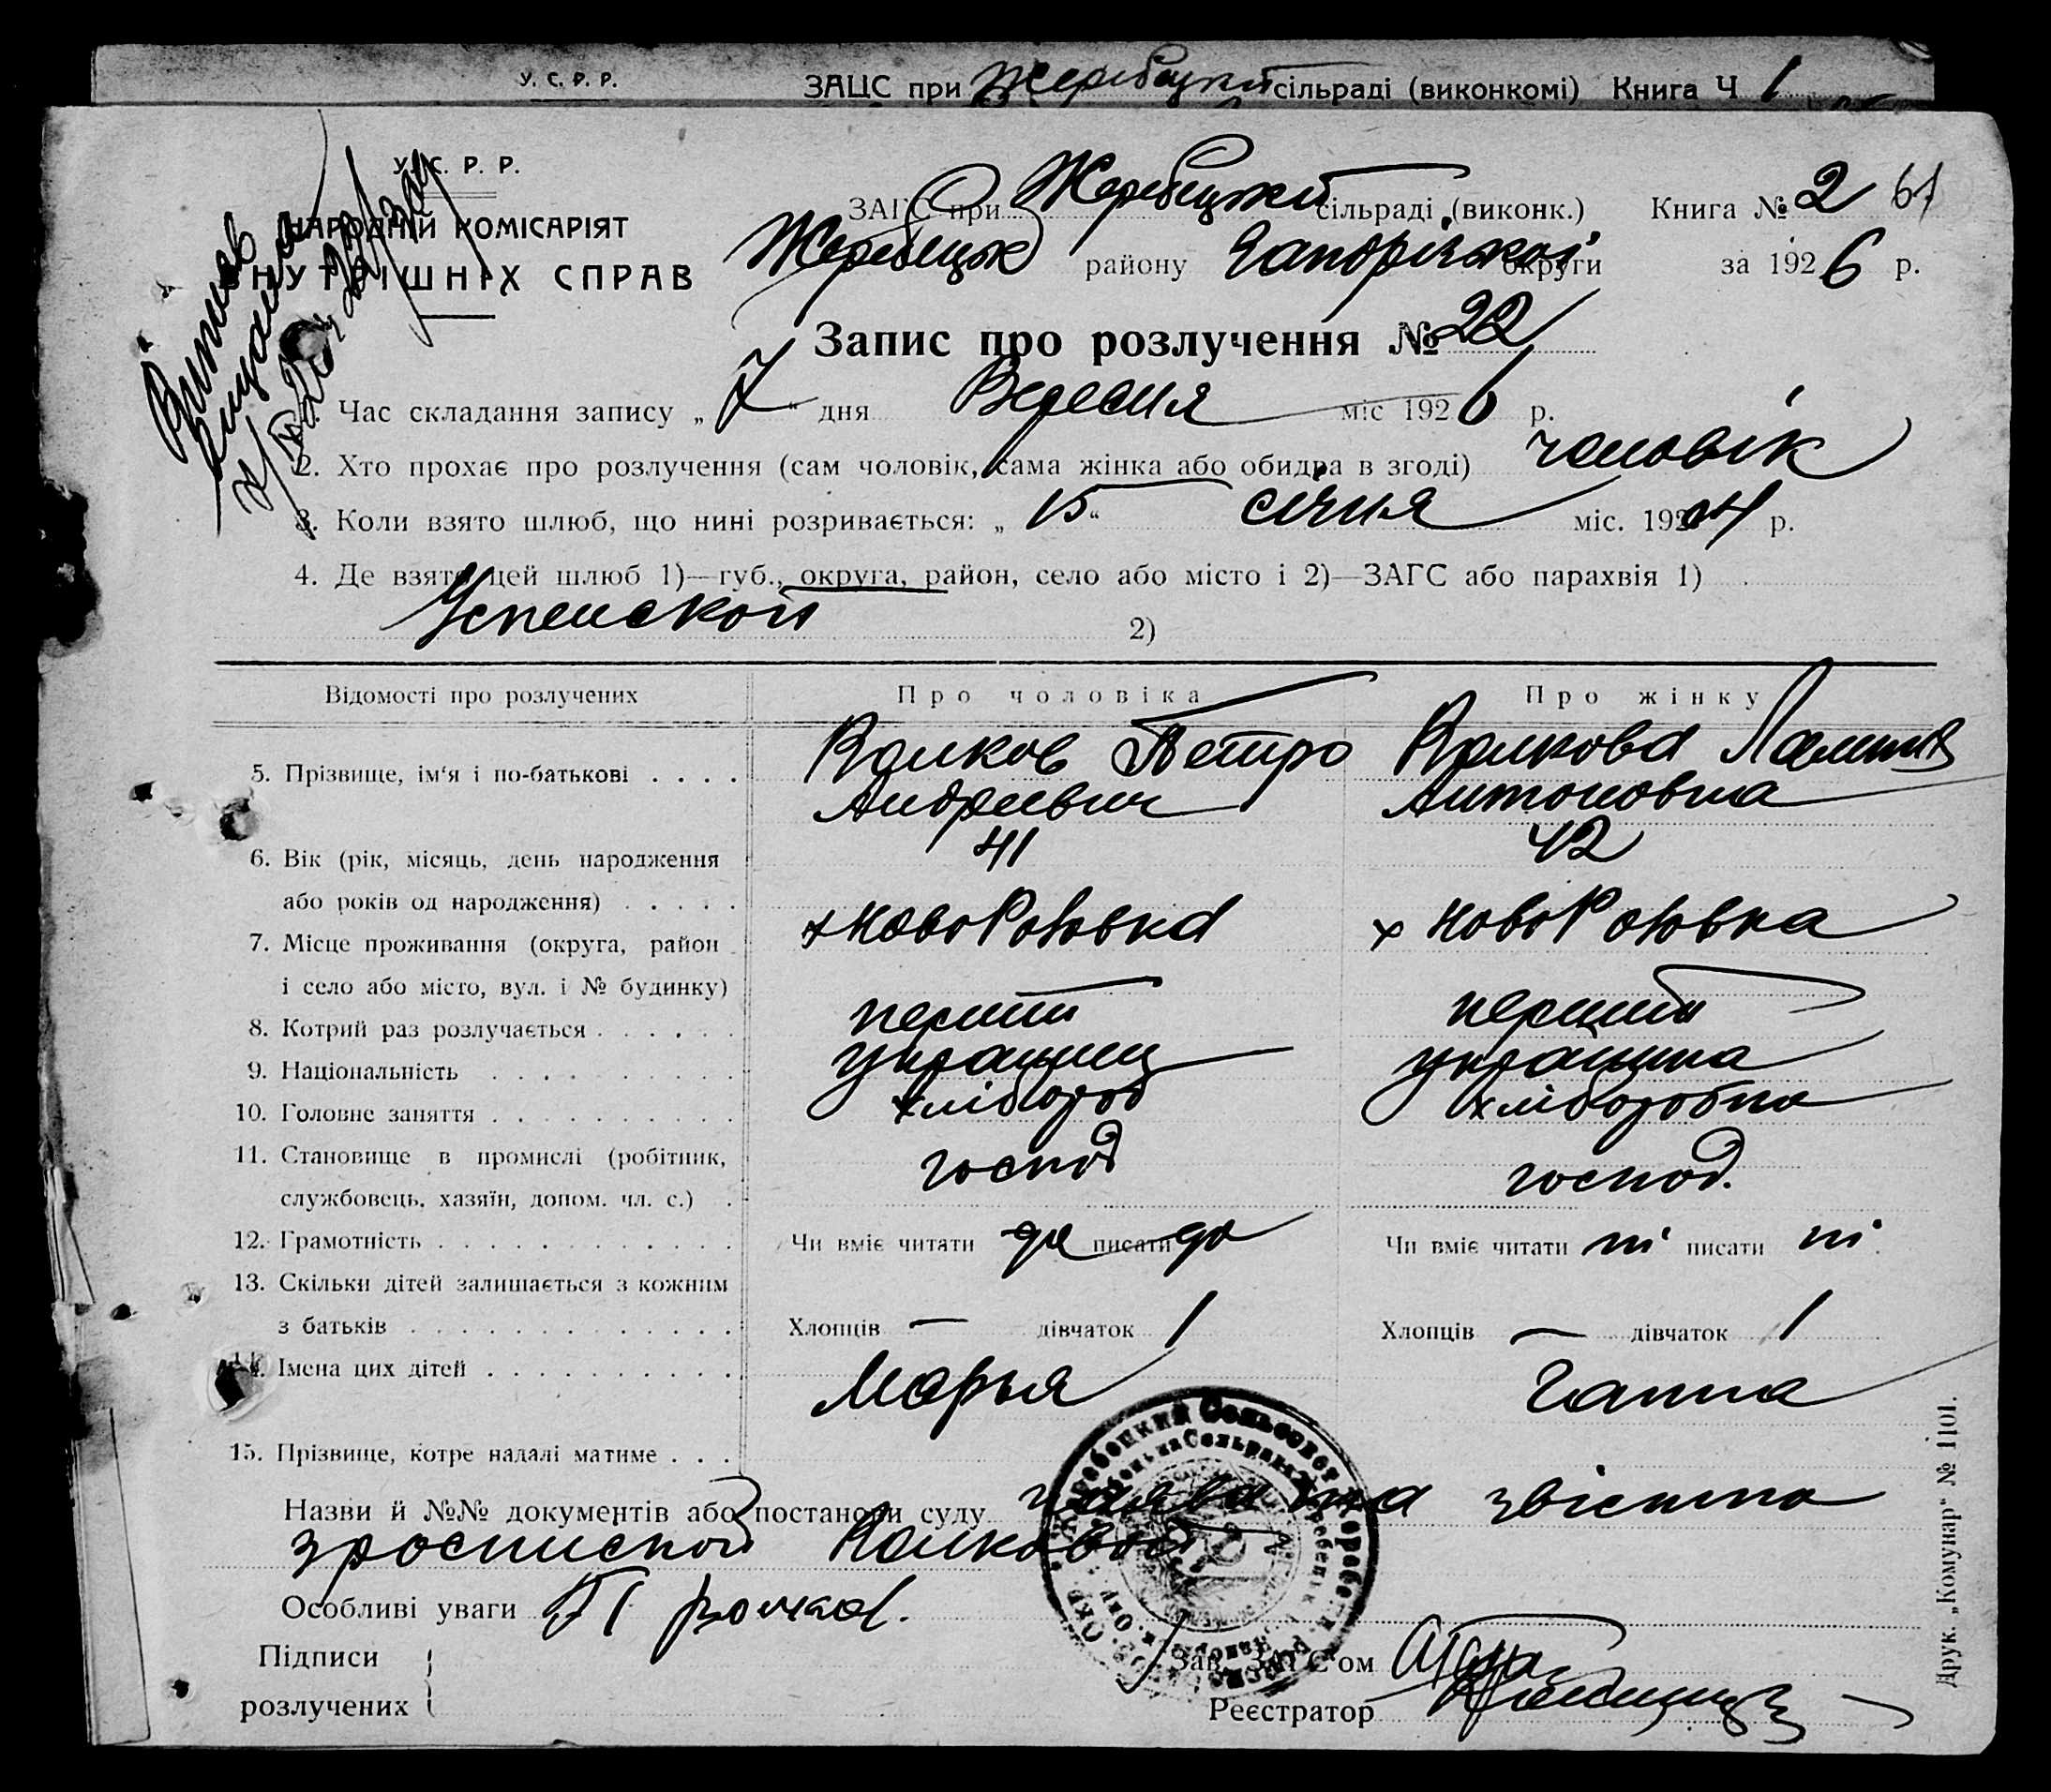 У. С. Р. Р. ЗАЦС при Жеребецкій сільраді (виконкомі) Книга Ч 1
У. С. Р. Р.
НАРОДНІЙ КОМІСАРІЯТ
ВНУТРІШНІХ СПРАВ
ЗАГС при Жеребецькій сільраді (виконк.) Книга № 2 61
Жеребецьк району Запорізької округи за 1926 р.
Запис про розлучення № 22
Час складання запису „ 7 “ дня Вересня міс 1926 р.
2. Хто прохає про розлучення (сам чоловік, сама жінка або обидва в згоді) чоловік
3. Коли взято шлюб, що нині розривається: „ 15 “ січня міс. 1904 р.
4. Де взято цей шлюб 1)—губ., округа, район, село або місто і 2)—ЗАГС або парахвія 1)
Успенской 2)
Відомості про розлучених Про чоловіка Про жінку
5. Прізвище, ім'я і по-батькові . . . . Волков Петро Волкова
Андреевич Антоновна
6. Вік (рік, місяць, день народження 41 42
або років од народження) . . . . .
7. Місце проживання (округа, район х х
і село або місто, вул. і № будинку)
8. Котрий раз розлучається . . . . . . перший перший
9. Національність . . . . . . . . . . українец українка
10. Головне заняття . . . . . . . . . хлібороб хлiборобка
11. Становище в промислі (робітник, господ господ.
службовець, хазяїн, допом. чл. с.) .
12. Грамотність . . . . . . . . . . . . Чи вміє читати да писати да Чи вміє читати ні писати ні
13. Скільки дітей залишається з кожним
з батьків . . . . . . . . . . . . . Хлопців — дівчаток 1 Хлопців — дівчаток 1
14. Імена цих дітей . . . . . . . . . . Марья Ганна
15. Прізвище, котре надалі матиме . . .
Назви й №№ документів або постанови суду заява та звістка
зроспиской Волковой
Особливі уваги
Підписи
розлучених
Зав. ЗАГС'ом
Реєстратор
Друк. „Комунар“ № 1101.